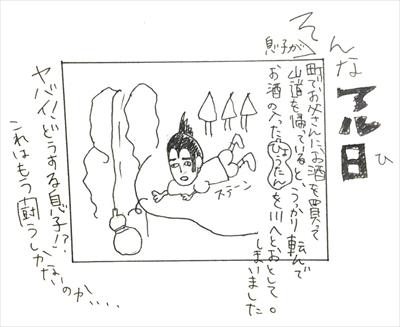 そんなアル日 ひ
息子が
町でお父さんにお酒を買って
山道を帰ってると、うっかり転んで
お酒の入ったひょうたんを川へおとして
しまいました。
ステーン
ヤバイ!どうする息子!?
これはもう闘うしかないのか、、、、